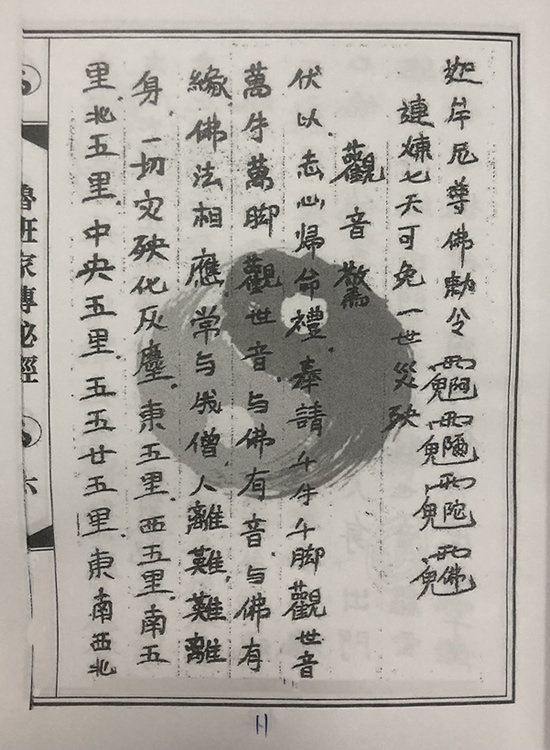 迦岸厄尊佛勅令
連煉七天可免一世災殃
觀音驚
伏以志心歸命禮奉請千牛千脚觀世音
萬牛萬脚觀世音与佛有音与佛有
緣佛法相應常与我僧人離難難離
身一切灾殃化灰塵東五里西五里南五
里北五里中央五里五五廿五里東南西北
魯班家傳秘經
六
11